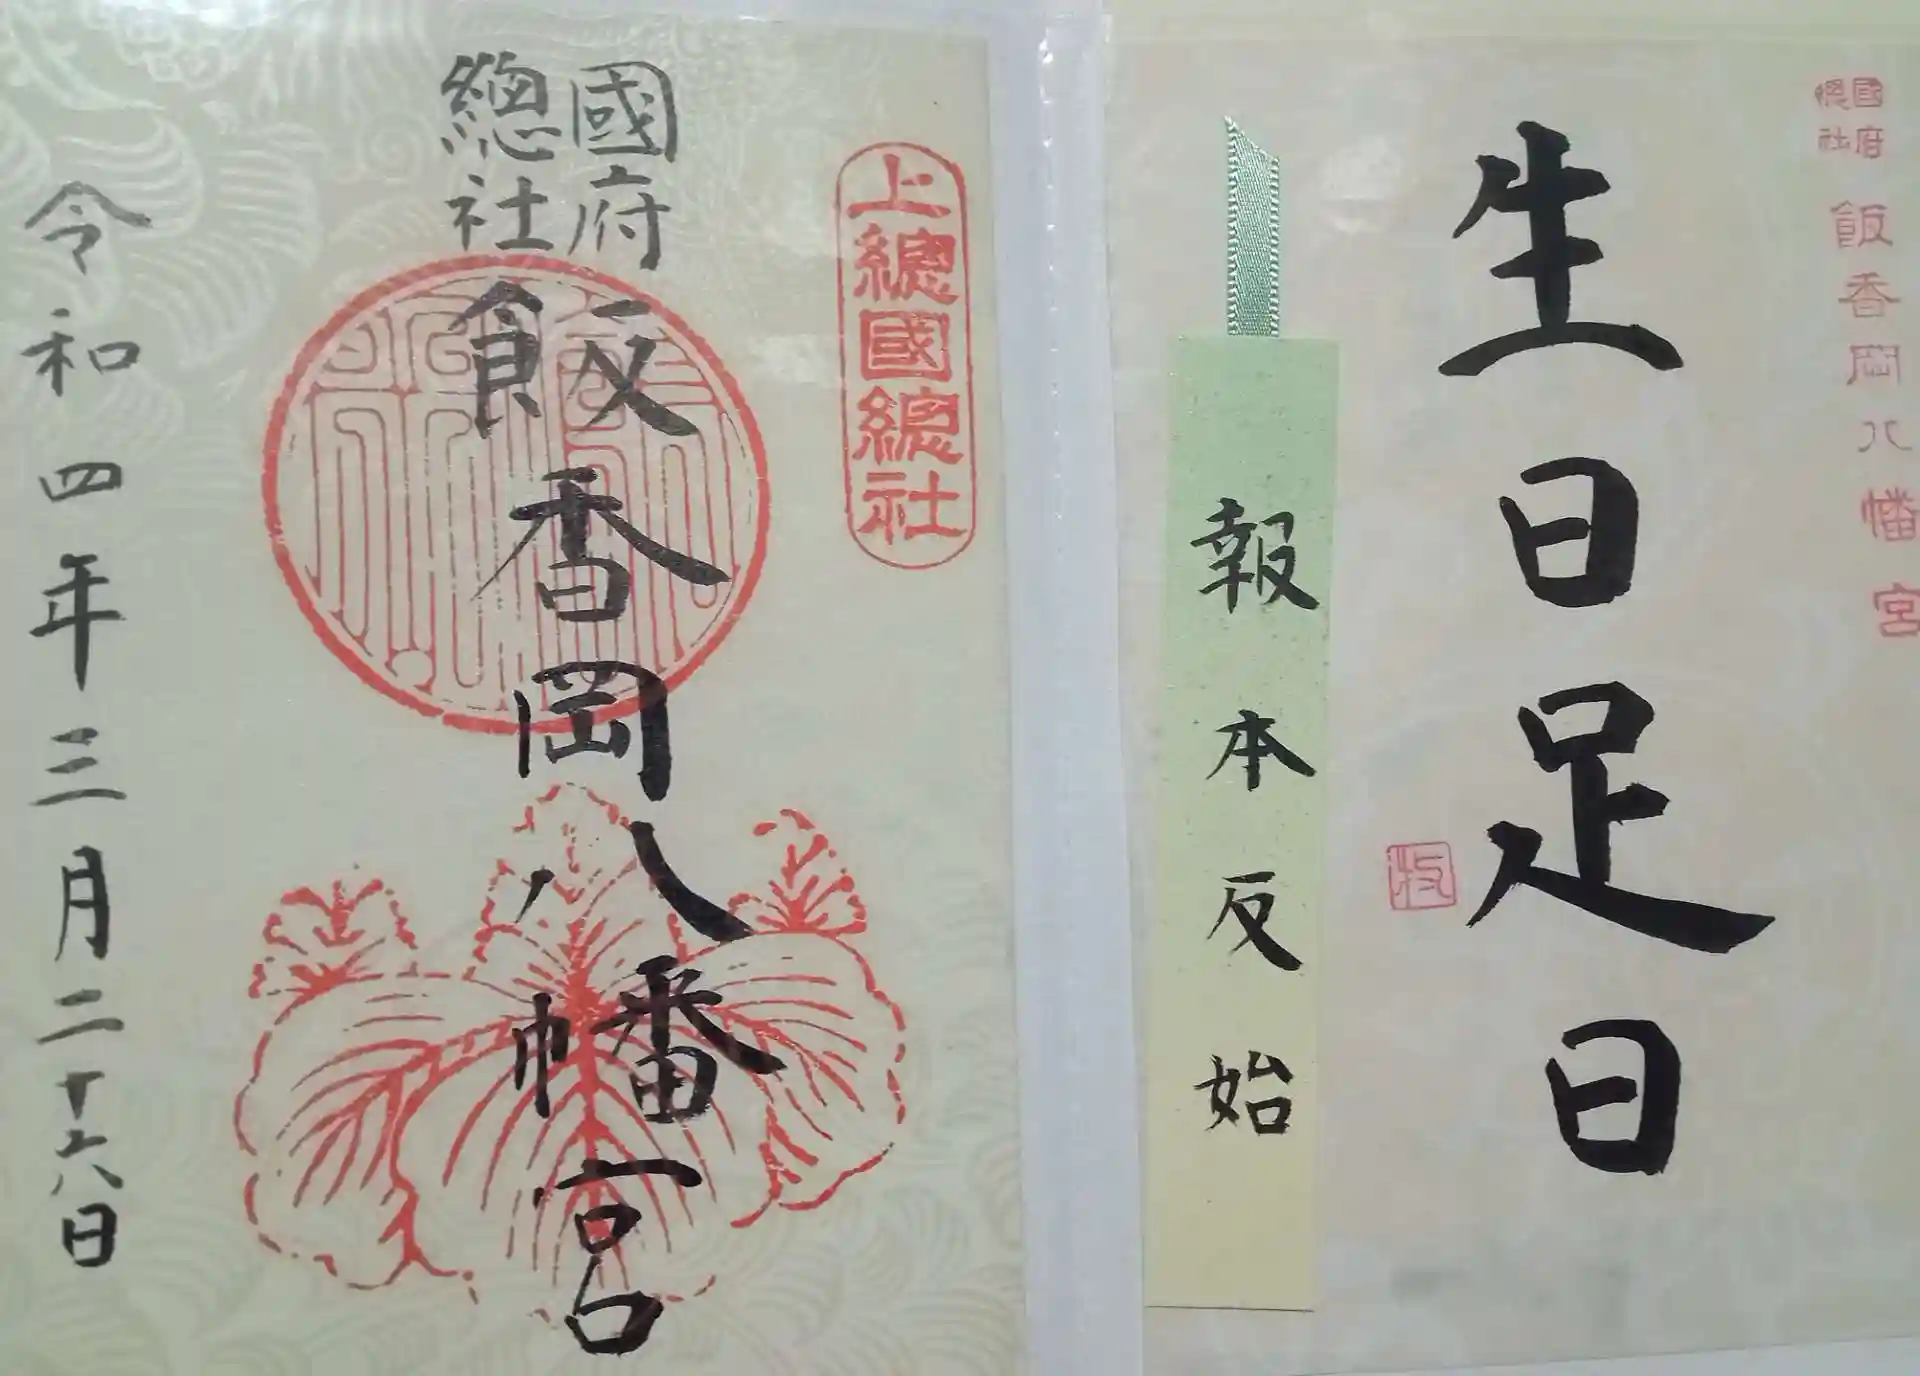 國府
總社
飯香岡八幡宮
生日足日
報本反始
上總國總社
國府
總社
飯香岡八幡宮
令和四年三月二十六日